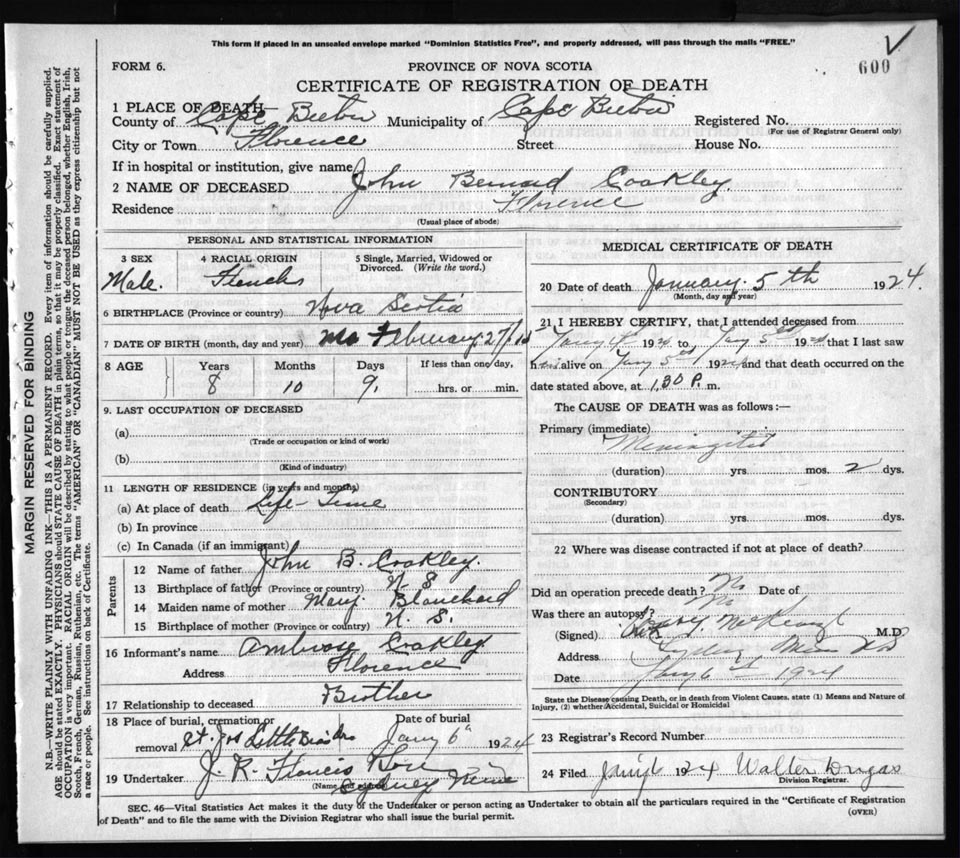 This form if placed in an unsealed envelope marked "Dominion Statistics Free", and properly addressed, will pass through the mails "FREE."
FORM 6.
PROVINCE OF NOVA SCOTIA
600
CERTIFICATE OF REGISTRATION OF DEATH
1 PLACE OF DEATH
County of Cape Breton Municipality of Cape Breton Registered No.
(For use of Registrar General only)
City or Town Florence Street House No.
If in hospital or institution, give name
2 NAME OF DECEASED John Bernard Coakley
Residence Florence
(Usual place of abode)
PERSONAL AND STATISTICAL INFORMATION
3 SEX 4 RACIAL ORIGIN 5 Single, Married, Widowed or Divorced. (Write the word.)
Male. French
6 BIRTHPLACE (Province or country) Nova Scotia
7 DATE OF BIRTH (month, day and year) February 27/15
8 AGE Years Months Days If less than one day,
8 10 9. hrs. or min.
9. LAST OCCUPATION OF DECEASED
(a)
(Trade or occupation or kind of work)
(b)
(Kind of industry)
11 LENGTH OF RESIDENCE (in years and months)
(a) At place of death Life-Time
(b) In province
(c) In Canada (if an immigrant)
Parents
12 Name of father John B. Coakley.
13 Birthplace of father (Province or country) N. S
14 Maiden name of mother Mary Blanchard
15 Birthplace of mother (Province or country) N. S.
16 Informant's name Ambrose Coakley
Address Florence
17 Relationship to deceased Brother
18 Place of burial, cremation or removal Date of burial
St. Jos Little Bras dor Jany 6th 1924
19 Undertaker J. R. Francis
(Name and address) Sydney Mines
MEDICAL CERTIFICATE OF DEATH
20 Date of death January 5th 1924.
(Month, day and year)
21 I HEREBY CERTIFY, that I attended deceased from
Jany 1924 to Jany 5th 1924 that I last saw
him alive on Jany 5th 1924 and that death occurred on the
date stated above, at 1.30 P. m.
The CAUSE OF DEATH was as follows:—
Primary (immediate)
Meningitis
(duration) yrs. mos. 2 dys.
CONTRIBUTORY
(Secondary)
(duration) yrs. mos. dys.
22 Where was disease contracted if not at place of death?
Did an operation precede death? No Date of
Was there an autopsy? No
(Signed) M.D.
Address Sydney Mines NS
Date Jany 6th 1924
State the Disease causing Death, or in death from Violent Causes, state (1) Means and Nature of
Injury, (2) whether Accidental, Suicidal or Homicidal
23 Registrar's Record Number
24 Filed 1924 Walter Dugas
Division Registrar.
SEC. 46—Vital Statistics Act makes it the duty of the Undertaker or person acting as Undertaker to obtain all the particulars required in the "Certificate of Registration
of Death" and to file the same with the Division Registrar who shall issue the burial permit.
(OVER)
MARGIN RESERVED FOR BINDING
N.B.—WRITE PLAINLY WITH UNFADING INK—THIS IS A PERMANENT RECORD. Every item of information should be carefully supplied.
AGE should be stated EXACTLY. PHYSICIANS should STATE CAUSE OF DEATH in plain terms, so that it may be properly classified. Exact statement of
OCCUPATION is very important. RACIAL ORIGIN will be described by stating to what people or tongue the deceased person belonged, whether English, Irish,
Scotch, French, German, Russian, Ruthenian, etc. The terms "AMERICAN" OR "CANADIAN" MUST NOT BE USED as they express citizenship but not
a race or people. See instructions on back of Certificate.